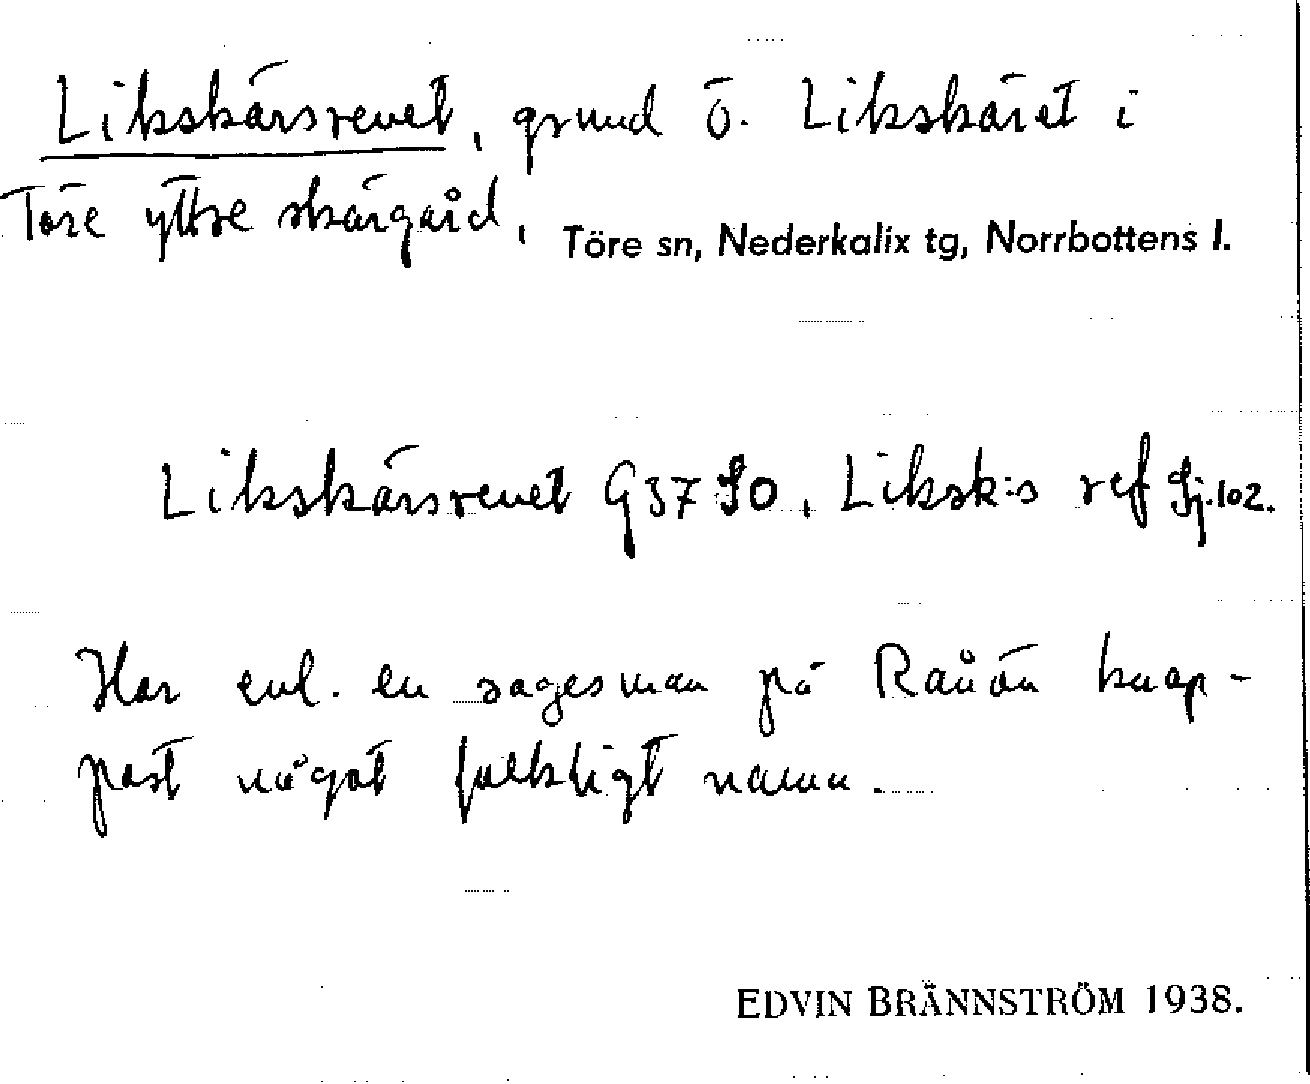 Likskärsrevet, grund ö. Likskäret i
Töre yttre skärgård.
Töre sn, Nederkalix tg, Norrbottens l.
Likskärsrevet G37 SO, Liksk:s ref Sj.102.
Har enl. en sagesman på Rånön knap-
past något folkligt namn.
EDVIN BRÄNNSTRÖM 1938.